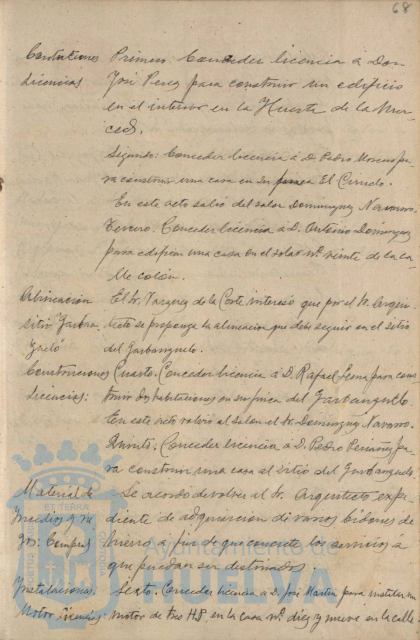 68
Contrucciones Primero: Conceder licencia á Don
Licencias José Perez para construir un edificio
en el interior en la Huerta de la Mer-
ced.
Segundo: Conceder licencia á D. Pedro Moreno pa-
ra construir una casa en su finca El Ciruelo.
En este acto salió del salon Dominguez Navarro.
Tercero: Conceder licencia á D. Antonio Dominguez
para edificar una casa en el solar nº veinte de la ca-
lle Colón.
Alineación El Sr. Vazquez de la Corte interesó que por el Sr. Arqui-
sitio Garban- tecto se proponga la alineacion que debe seguir en el sitio
zuelo del Garbanzuelo.
Construcciones Cuarto: Conceder licencia á D. Rafael para cons-
Licencias: truir dos habitaciones en su finca del Garbanzuelo.
En este acto volvió al salon el Sr. Dominguez Navarro.
Quinto: Conceder licencia á D. Pedro pa-
ra construir una casa al sitio del Garbanzuelo.
Material de Se acordó devolver el Sr. Arquitecto expe-
Incendios y rie- diente de adquisicion de varios bidones de
gos: Compra hierro á fin de que concrete los servicios á
que puedan ser destinados.
Instalaciones. Sexto: Conceder licencia á José Martin para instalar un
Motor: Licencias motor de tres HP en la casa nº diez y nueve en la calle
Ayuntamiento de
HUELVA